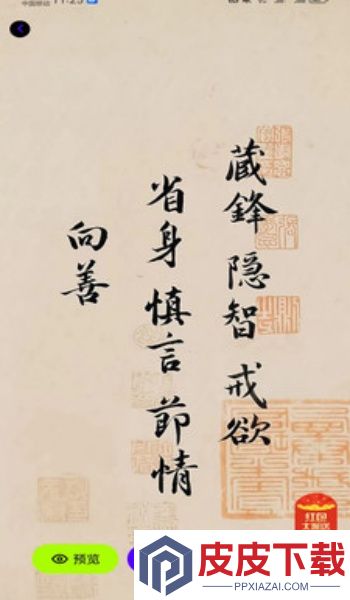 中国移动 11:25
藏鋒 隐智 戒欲
省身 慎言 節情
向善
预览
红包
大派送
皮皮下载
PPXIAZAI.COM